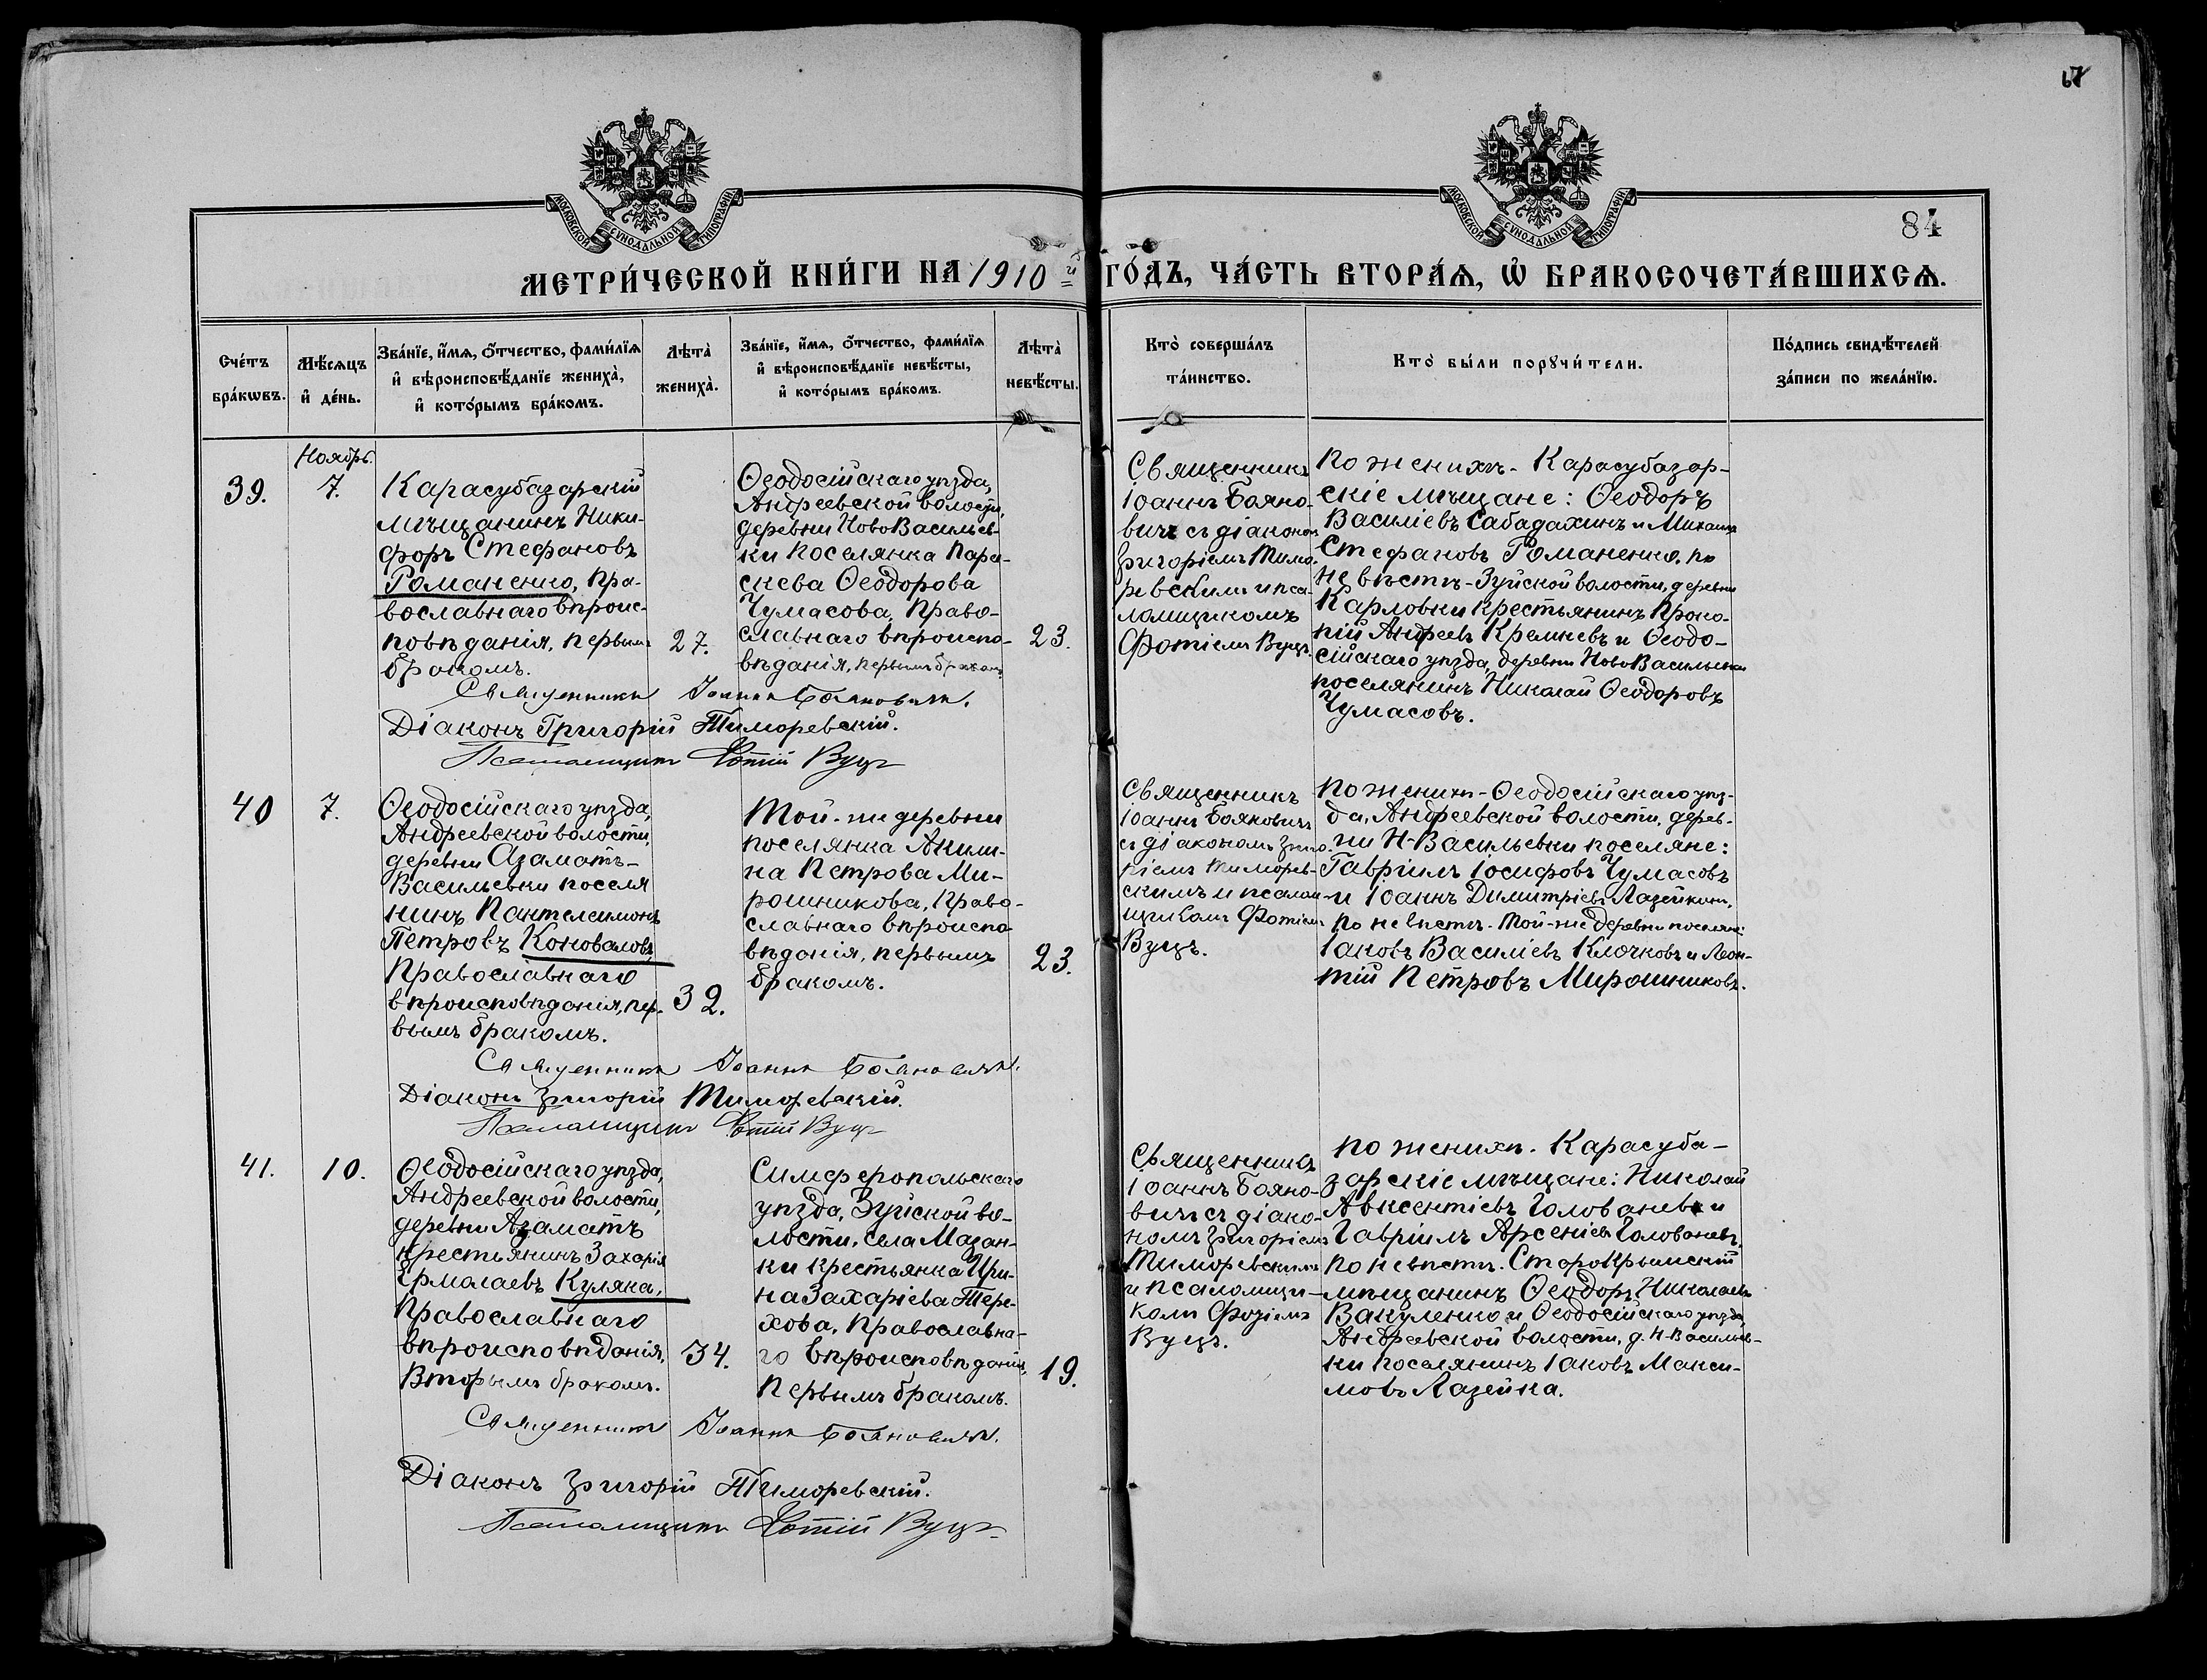 67
84
МОСКОВСКОЙ СѴНОДАЛЬНОЙ ТИПОГРАФІИ
МОСКОВСКОЙ СѴНОДАЛЬНОЙ ТИПОГРАФІИ
МЕТРИ́ЧЕСКОЙ КНИ́ГИ НА 1910й ГО́ДЪ, ЧА́СТЬ ВТОРА́Ѧ, Ѽ БРАКОСОЧЕТА́ВШИХСѦ.
Сче́тъ
бра́кѡвъ.
Мѣ́сѧцъ
и҆ де́нь.
Зва́нїе, и҆́мѧ, ѻ҆́тчество, фами́лїѧ
и҆ вѣроисповѣ́данїе жениха̀,
и҆ кото́рымъ бра́комъ.
Лѣта̀
жениха̀.
Зва́нїе, и҆́мѧ, ѻ҆́тчество, фами́лїѧ
и҆ вѣроисповѣ́данїе невѣ́сты,
и҆ кото́рымъ бра́комъ.
Лѣта̀
невѣ́сты.
Кто̀ соверша́лъ
та́инство.
Кто̀ бы́ли порꙋчи́тели.
По́дпись свидѣ́телей
за́писи по жела́нїю.
Ноябрь.
39.
7.
Карасубазарскій
мѣщанинъ Ники-
форъ Стефановъ
Романенко, пра-
вославнаго вѣроис-
повѣданія, первымъ
бракомъ.
27.
Ѳеодосійскаго уѣзда,
Андреевской волости,
деревни НовоВасильев-
ки поселянка Пара-
скева Ѳеодорова
Чумасова, право-
славнаго вѣроиспо-
вѣданія, первымъ бракомъ,
23.
Священникъ
Іоаннъ Бояно-
вичъ съ діакономъ
Григоріемъ Тимо-
ревскимъ и пса-
ломщикомъ
Фотіемъ Вуцъ.
По женихѣ - Карасубазар-
скіе мѣщане: Ѳеодоръ
Василіевъ Сабадахинъ и Михаилъ
Стефановъ Романенко. по
невѣстѣ - Зуйской волости, деревни
Карловки крестьянинъ Проко-
пій Андреевъ Кремневъ и Ѳеодо-
сійскаго уѣзда, деревни НовоВасильевки
поселянинъ Николай Ѳеодоровъ
Чумасовъ.
Священникъ Іоаннъ Бояновичъ.
Діаконъ Григорій Тиморевскій.
Псаломщикъ Фотій Вуцъ
40
7.
Ѳеодосійскаго уѣзда,
Андреевской волости,
деревни Азаматъ-
Васильевки поселя
нинъ Пантелеимонъ
Петровъ Коноваловъ,
Православнаго
вѣроисповѣданія, пер-
вымъ бракомъ.
32.
Той-же деревни
поселянка Акили-
на Петрова Ми-
рошникова, право-
славнаго вѣроиспо-
вѣданія, первымъ
бракомъ.
23.
Священникъ
Іоаннъ Бояновичъ
съ діакономъ Григо-
ріемъ Тиморев-
скимъ и псалом-
щикомъ Фотіемъ
Вуцъ.
По женихѣ - Ѳеодосійскаго уѣз-
да, Андреевской волости, дерев-
ни Н-Васильевки поселяне:
Гавріилъ Іосифовъ Чумасовъ
и Іоаннъ Димитріевъ Лазейкинъ,
по невѣстѣ - Той-же деревни поселяне:
Іаковъ Василіевъ Клочковъ и Леон-
тій Петровъ Мирошниковъ.
Священникъ Іоаннъ Бояновичъ.
Діаконъ Григорій Тиморевскій.
Псаломщикъ Фотій Вуцъ
41.
10.
Ѳеодосійскаго уѣзда,
Андреевской волости,
деревни Азаматъ
крестьянинъ Захарія
Ермолаевъ Куляка,
Православнаго
вѣроисповѣданія,
Вторымъ бракомъ.
34.
Симферопольскаго
уѣзда, Зуйской во-
лости, села Мазан-
ки крестьянка Ири-
на Захаріева Тере-
хова, Православна-
го вѣроисповѣданія,
Первымъ бракомъ.
19.
Священникъ
Іоаннъ Бояно-
вичъ съ діако-
номъ Григоріемъ
Тиморевскимъ
и псаломщи-
комъ Фотіемъ
Вуцъ.
По женихѣ. Карасуба-
зарскіе мѣщане: Николай
Авксентіевъ Голованевъ и
Гавріилъ Арсеніевъ Голованевъ,
по невѣстѣ. СтароКрымскій
мѣщанинъ Ѳеодоръ Николаевъ
Вакуленко и Ѳеодосійскаго уѣзда,
Андреевской волости, д. Н-Васильев-
ки поселянинъ Іаковъ Макси-
мовъ Лазейка.
Священникъ Іоаннъ Бояновичъ.
Діаконъ Григорій Тиморевскій.
Псаломщикъ Фотій Вуцъ